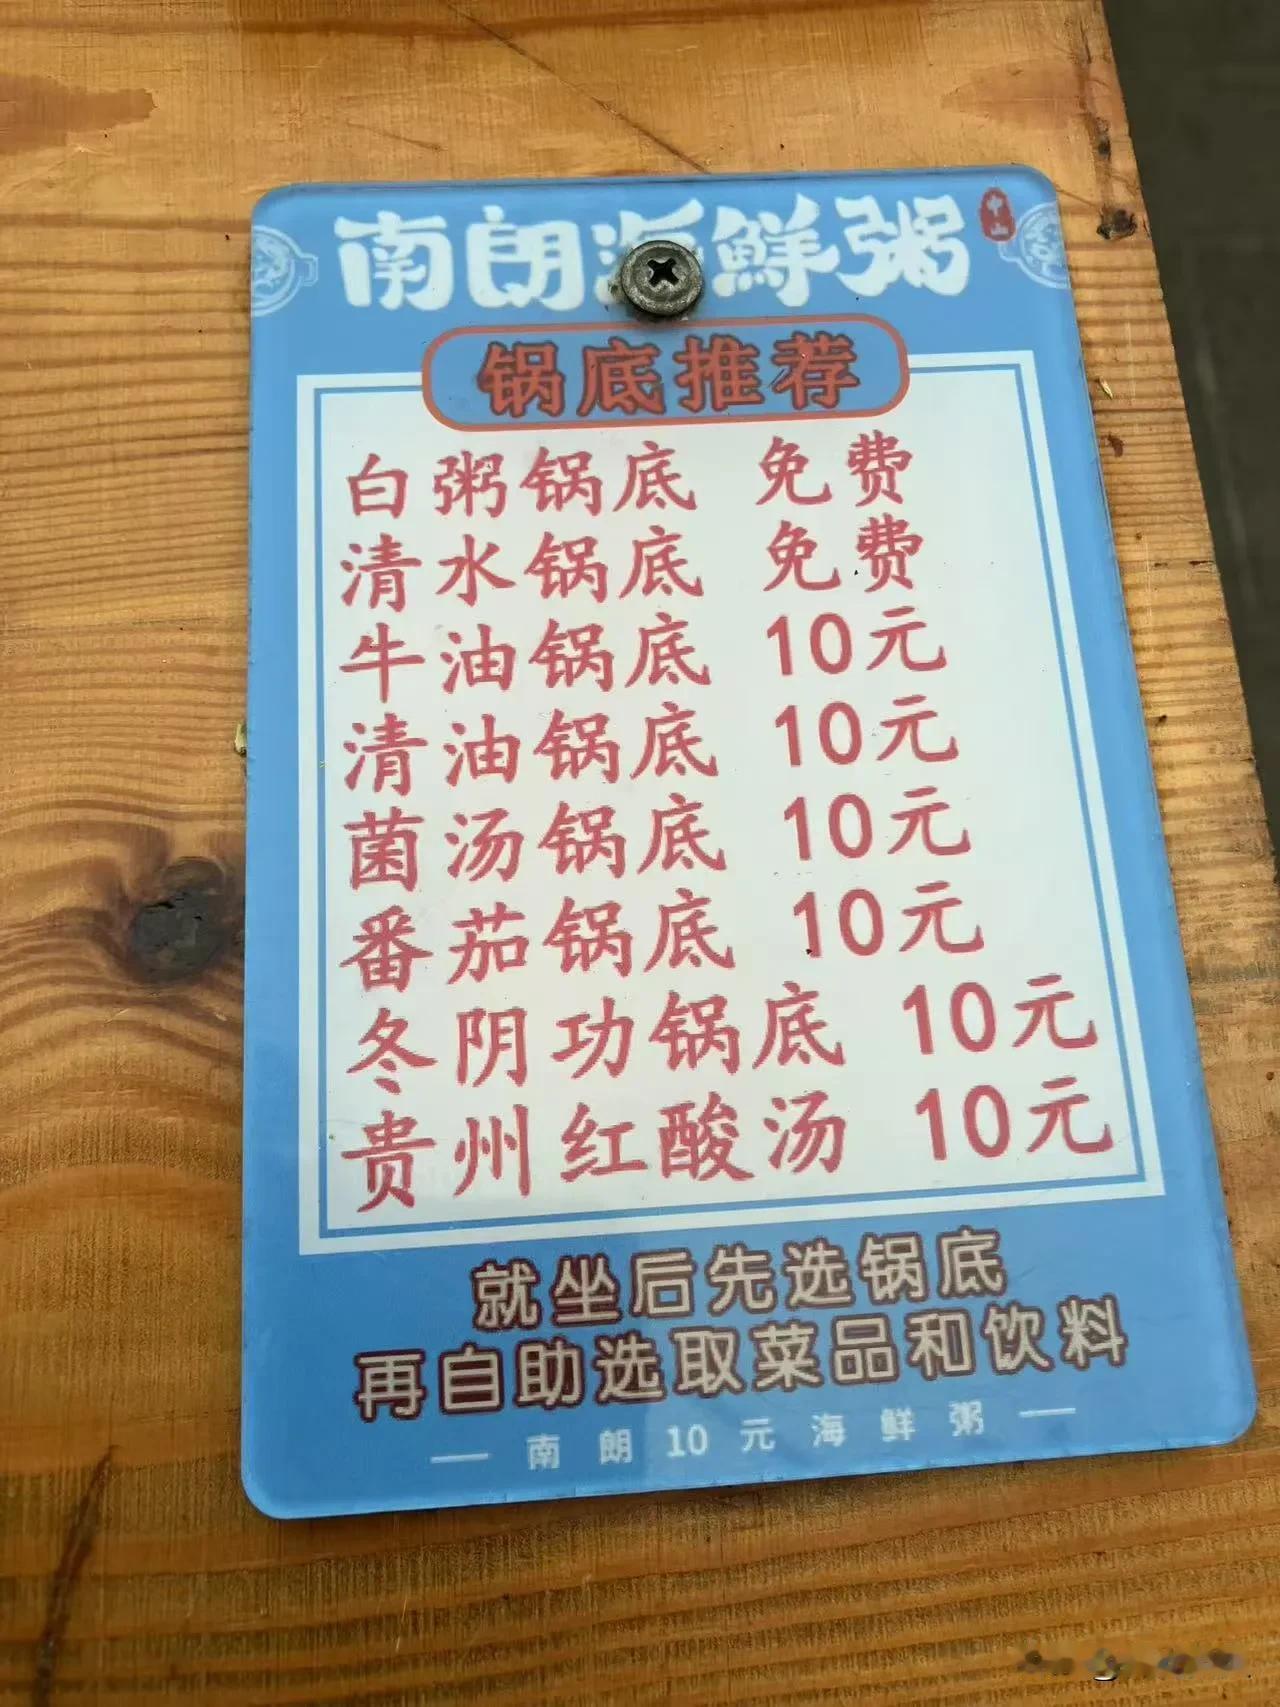 南朗海鲜粥
中山
锅底推荐
白粥锅底 免费
清水锅底 免费
牛油锅底 10元
清油锅底 10元
菌汤锅底 10元
番茄锅底 10元
冬阴功锅底 10元
贵州红酸汤 10元
就坐后先选锅底
再自助选取菜品和饮料
— 南朗10元海鲜粥 —